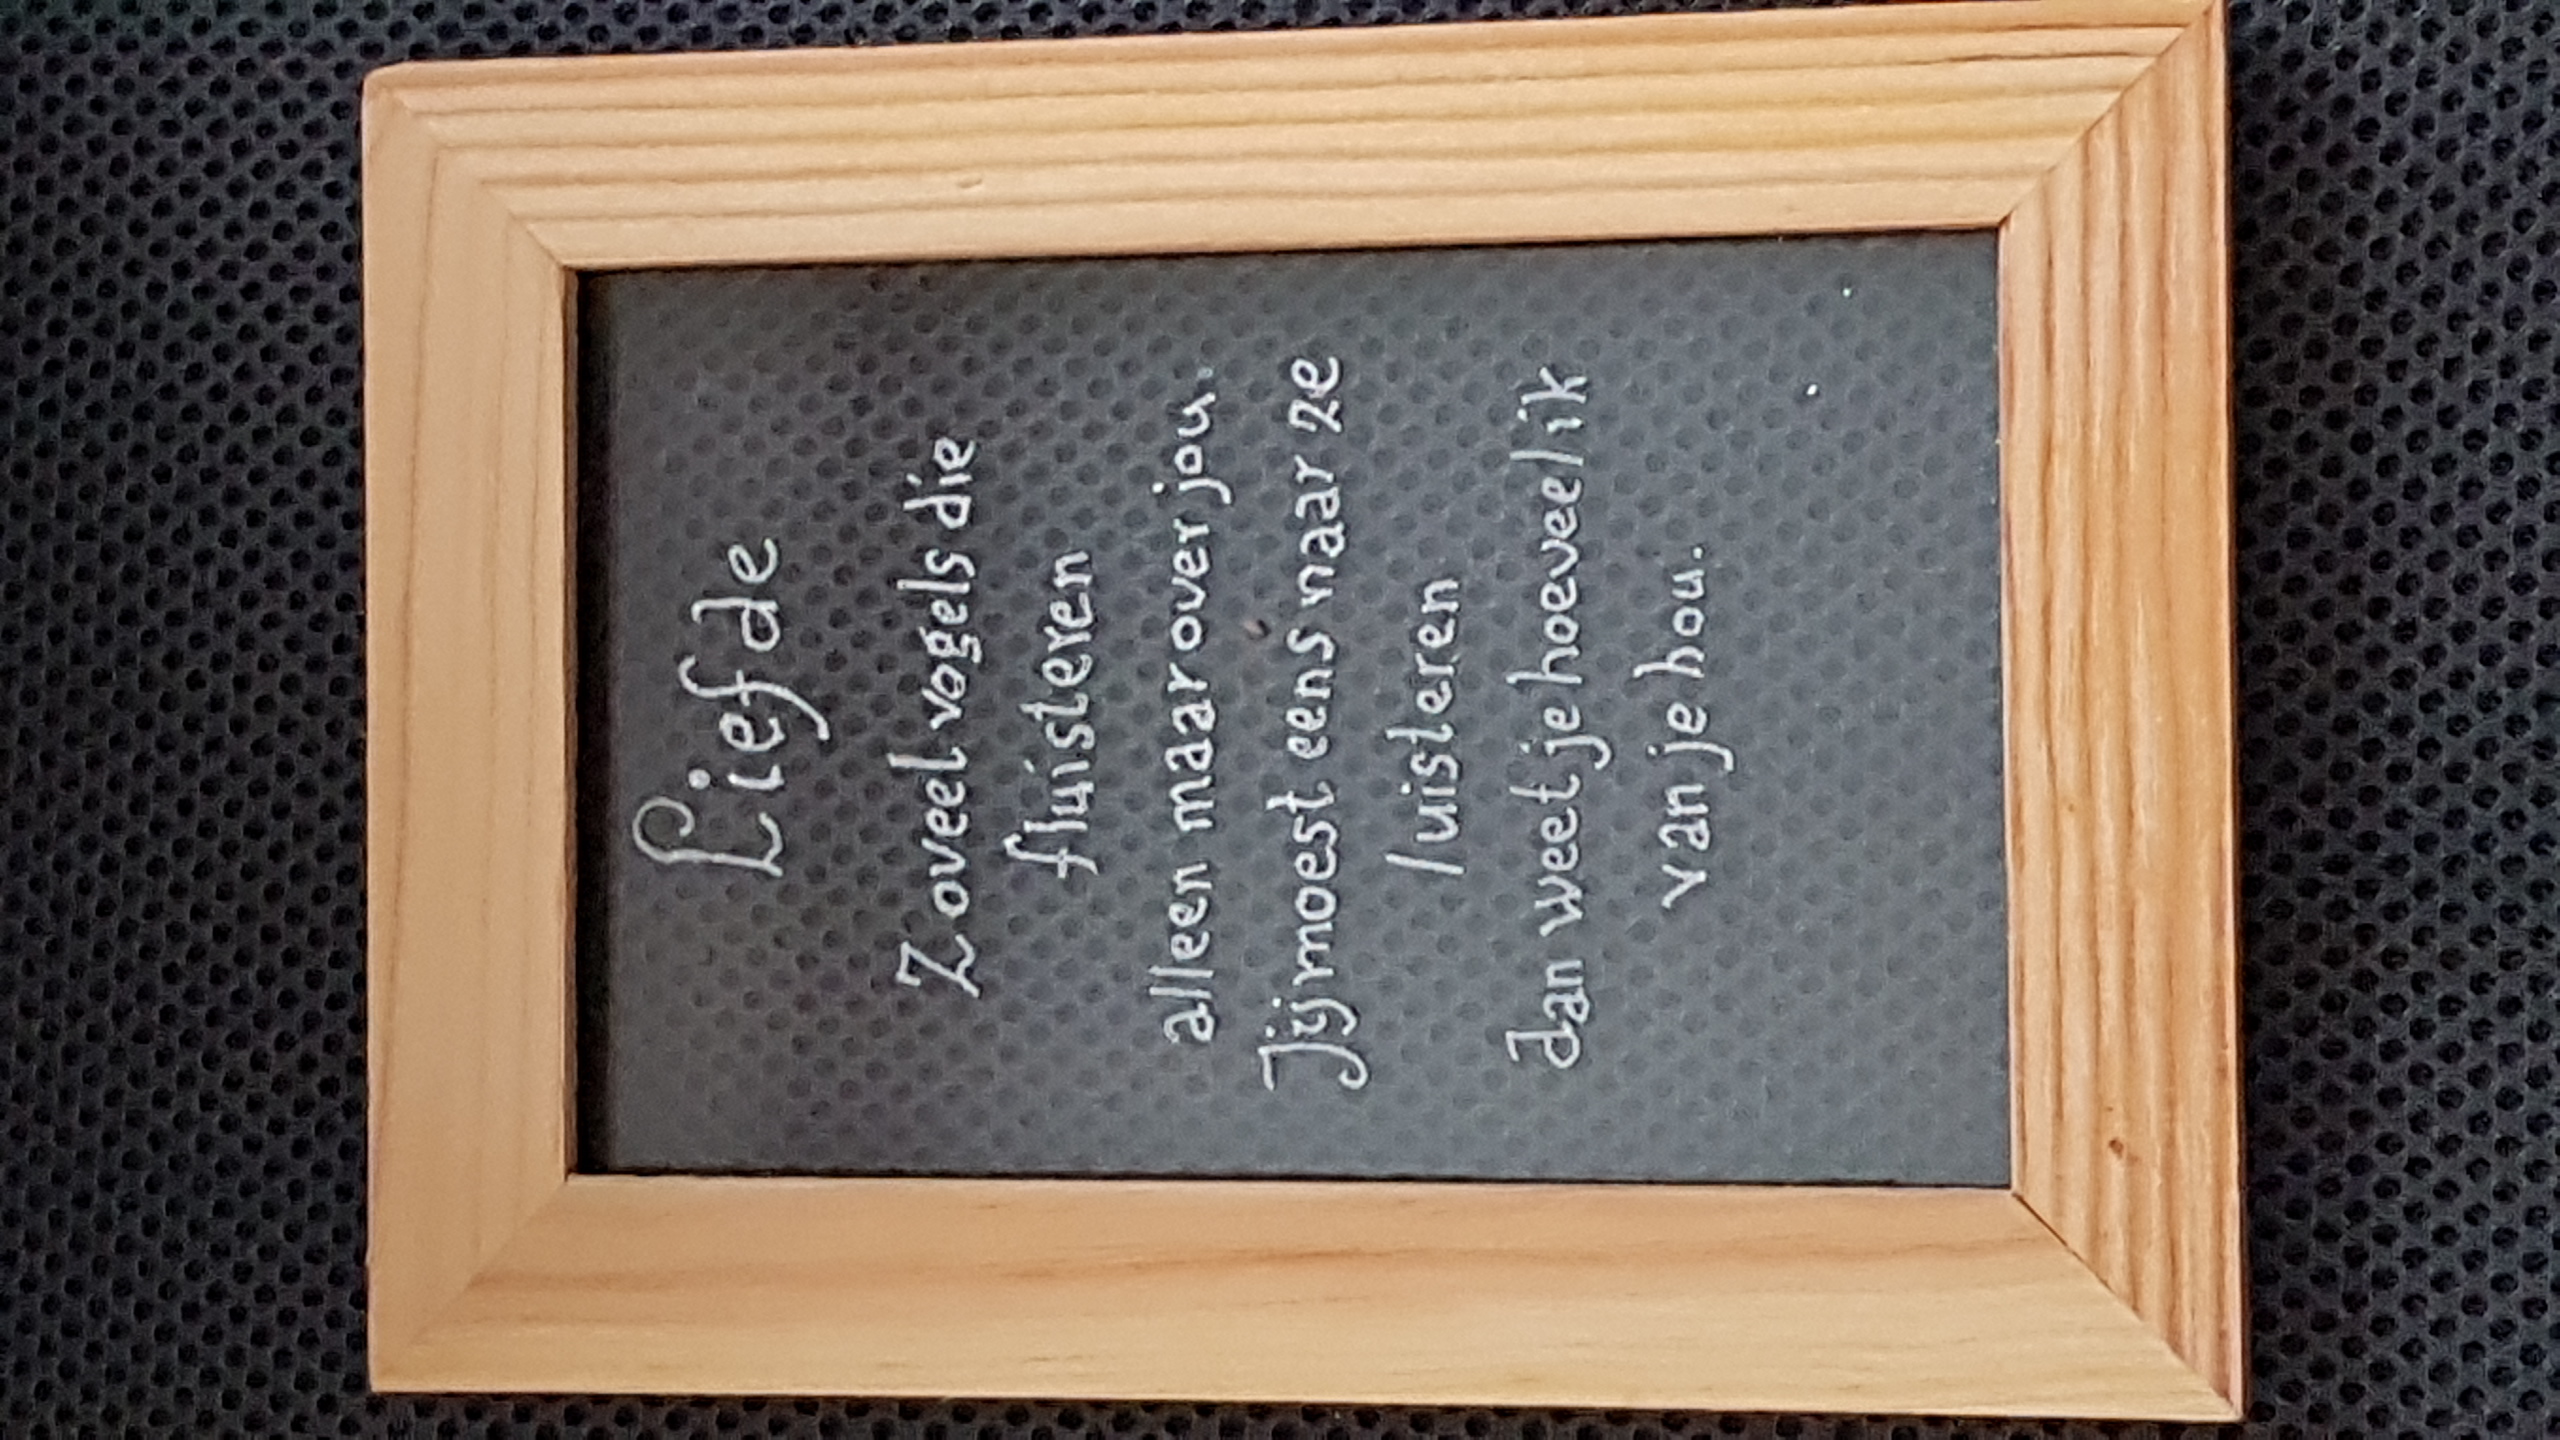 Liefde
Zoveel vogels die
fluisteren
alleen maar over jou.
Jij moest eens naar ze
luisteren
dan weet je hoeveel ik
van je hou.